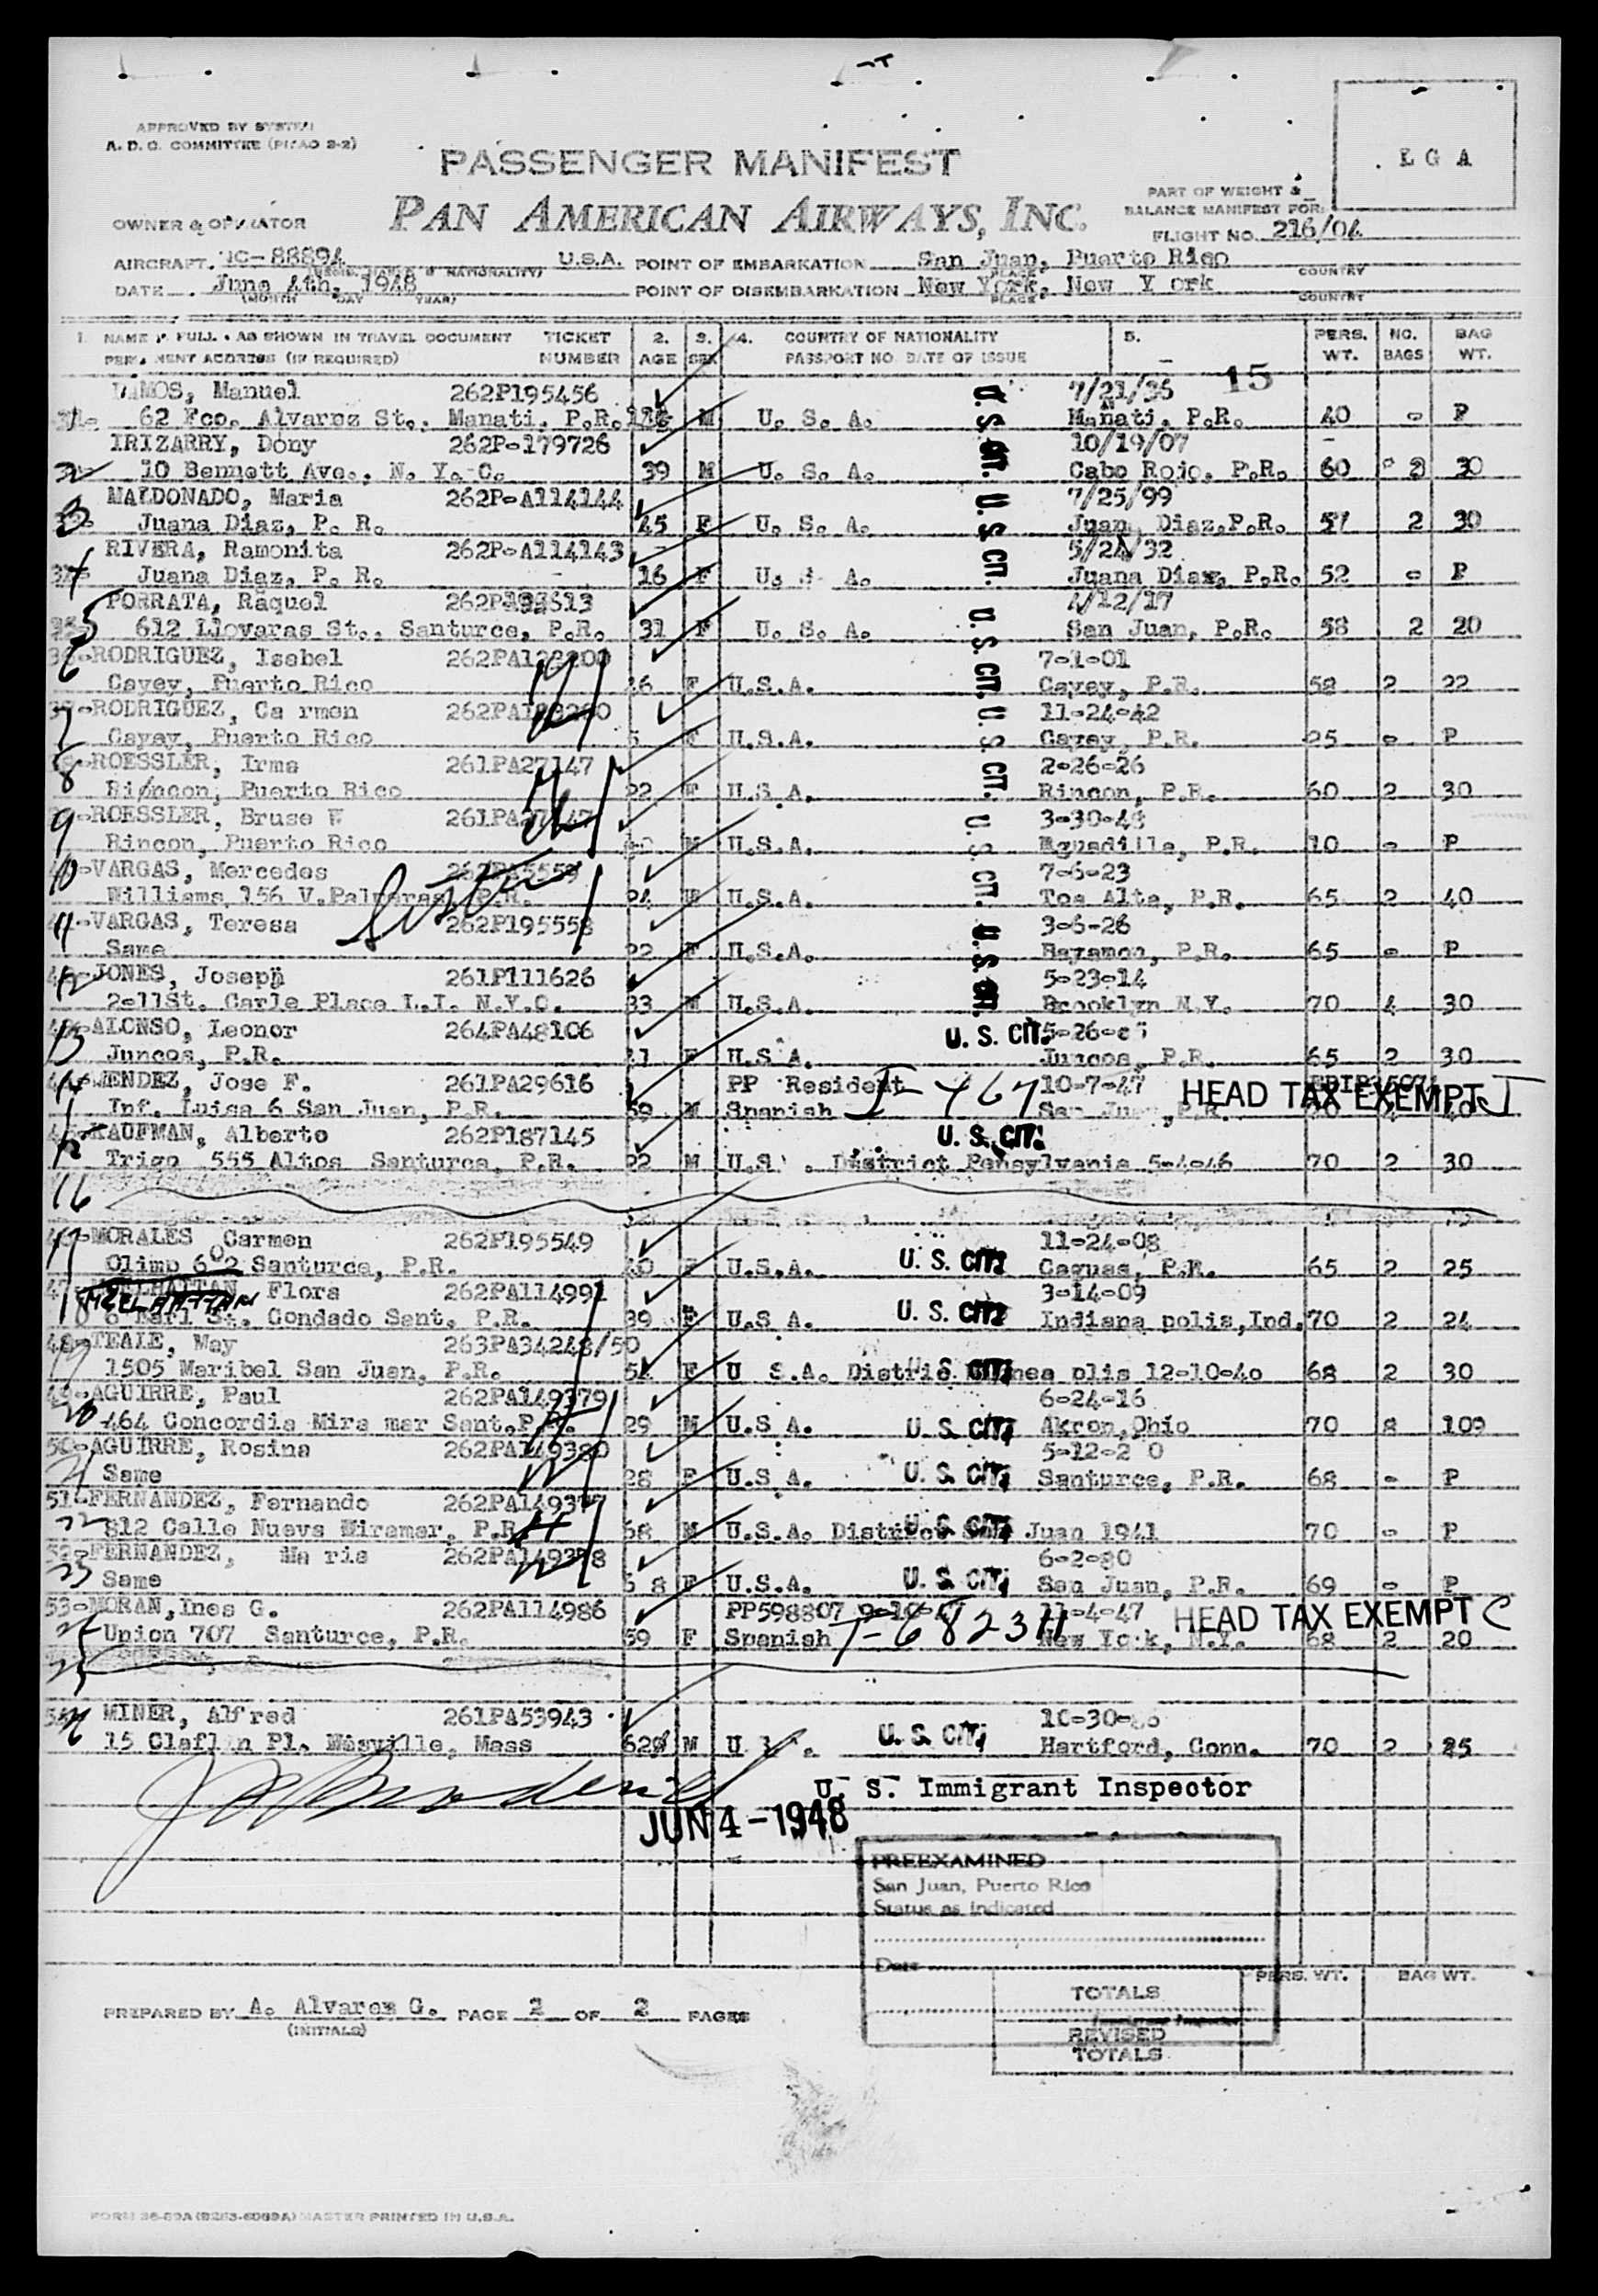 APPROVED BY SYSTEM
A. D. C. COMMITTEE (PICAO 2-2)
PASSENGER MANIFEST
L G A
PART OF WEIGHT &
BALANCE MANIFEST FOR:
OWNER & OPERATOR
PAN AMERICAN AIRWAYS, INC.
FLIGHT NO. 216/04
AIRCRAFT. NC-88894 U.S.A. POINT OF EMBARKATION San Juan, Puerto Rico
PLACE COUNTRY
DATE June 4th, 1948 POINT OF DISEMBARKATION New York, New Y ork
(MONTH DAY YEAR) PLACE COUNTRY
1. NAME IN FULL - AS SHOWN IN TRAVEL DOCUMENT TICKET 2. 3. 4. COUNTRY OF NATIONALITY 5. PERS. NO. BAG
PERMANENT ADDRESS (IF REQUIRED) NUMBER AGE SEX PASSPORT NO. DATE OF ISSUE WT. BAGS WT.
15
RAMOS, Manuel 262P195456 7/21/36
62 Fco. Alvarez St., Manati, P.R. M U. S. A. U.S. CIT. Manati, P.R. 40 - P
IRIZARRY, Dony 262P-179726 10/19/07
32 10 Bennett Ave., N. Y. C. 39 M U. S. A. Cabo Rojo, P.R. 60 2 30
MALDONADO, Maria 262P-A114144 7/25/99
3 Juana Diaz, P. R. 45 F U. S. A. U.S. CIT. Juan Diaz,P.R. 57 2 30
RIVERA, Ramonita 262P-A114143 5/24/32
4 Juana Diaz, P. R. 16 F U. S. A. Juana Diaz, P.R. 52 - P
PORRATA, Raquel 4/12/17
5 612 Llovaras St., Santurce, P.R. 31 F U. S. A. U.S. CIT. San Juan, P.R. 58 2 20
6 RODRIGUEZ, Isabel 7-1-01
Cayey, Puerto Rico 46 F U.S.A. Cayey, P.R. 58 2 22
7 RODRIGUEZ, Ca rmen 11-24-42
Cayey, Puerto Rico 5 F U.S.A. U.S. CIT. Cayey, P.R. 25 - P
8 ROESSLER, Irma 261PA27147 2-26-26
Rincon, Puerto Rico 22 F U.S.A. Rincon, P.R. 60 2 30
9 ROESSLER, Bruse W 3-30-48
Rincon, Puerto Rico M U.S.A. U.S. CIT. Eguadilla, P.R. 10 - P
10 VARGAS, Mercedes 7-6-23
Williams 156 V.Palmeras, P.R. 24 F U.S.A. Toa Alta, P.R. 65 2 40
11 VARGAS, Teresa 262P195558 3-6-26
Same 22 F U.S.A. U.S. CIT. Bayamon, P.R. 65 - P
12 JONES, Joseph 261P111626 5-23-14
2-11St. Carle Place L.I. N.Y.C. 33 M U.S.A. Brooklyn N.Y. 70 4 30
13 ALONSO, Leonor 264PA48106 U. S. CIT.
Juncos, P.R. F U.S.A. Juncos, P.R. 65 2 30
14 MENDEZ, Jose F. 261PA29616 PP Resident I-467 10-7-47 HEAD TAX EXEMPT I
Inf. Luisa 6 San Juan, P.R. 59 M Spanish San Juan, P.R.
15 KAUFMAN, Alberto 262P187145 U. S. CIT.
Trigo 555 Altos Santurce, P.R. 22 M U.S. District Pensylvania 5-4-46 70 2 30
16
17 MORALES Carmen 262P195549 11-24-08
Olimp 602 Santurce, P.R. 40 F U.S.A. U. S. CIT. Caguas, P.R. 65 2 25
47- Flora 262PA114991 3-14-09
18 McELHATTAN
6 Earl St. Condado Sant. P.R. 39 F U.S.A. U. S. CIT. Indiana polis,Ind. 70 2 24
48-TEALE, May 263PA34248/50
19 1505 Maribel San Juan, P.R. 54 F U S.A. U. S. CIT. 12-10-40 68 2 30
49-AGUIRRE, Paul 262PA149379 6-24-16
20 464 Concordia Mira mar Sant.P.R. 29 M U.S.A. U. S. CIT. Akron,Ohio 70 8 109
50-AGUIRRE, Rosina 262PA149380 5-12-2 0
21 Same 28 F U.S.A. U. S. CIT. Santurce, P.R. 68 - P
51-FERNANDEZ, Fernando 262PA149377
22 812 Calle Nueva Miramar, P.R. 68 M U.S.A. District San Juan 1941 U. S. CIT. 70 - P
52-FERNANDEZ, Ma ria 262PA149378 6-2-80
23 Same F U.S.A. U. S. CIT. San Juan, P.R. 69 - P
53-MORAN,Ines G. 262PA114986 PP598807 11-4-47 HEAD TAX EXEMPT C
Union 707 Santurce, P.R. 59 F Spanish New York, N.Y. 68 2 20
25
54 MINER, Alfred 261PA53943
15 Claflin Pl. Mass M U. S. CIT. Hartford, Conn. 70 2 25
U. S. Immigrant Inspector
JUN 4-1948
PREEXAMINED
San Juan, Puerto Rico
Status as indicated
Date
PERS. WT. BAG WT.
TOTALS
PREPARED BY A. Alvarez G. PAGE 2 OF 2 PAGES
(INITIALS)
Immigrant Inspector
REVISED
TOTALS
MASTER PRINTED IN U.S.A.